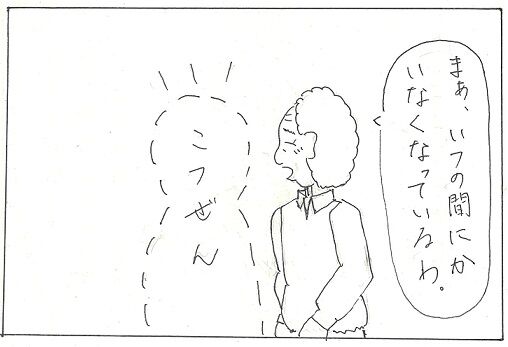 まぁ、いつの間にか
いなくなっているわ。
こつぜん